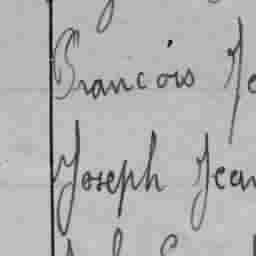 François
Joseph Jean